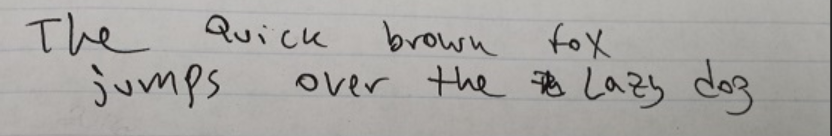 The Quick brown fox
jumps over the Lazy dog